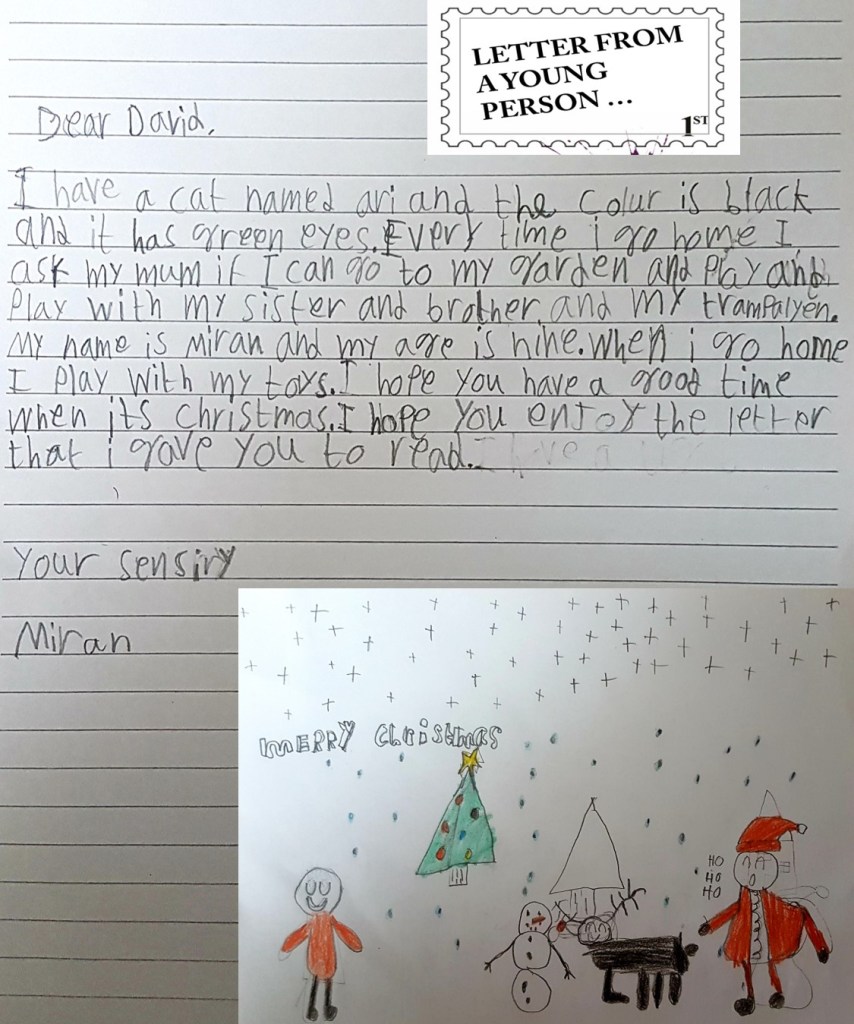 LETTER FROM
A YOUNG
PERSON ...
1ST
Dear David,
I have a cat named ari and the colur is black
and it has green eyes. Every time i go home I
ask my mum if I can go to my garden and Play and
Play with my sister and brother and my trampalyen.
My name is Miran and my age is nine. when i go home
I Play with my toys. I hope you have a good time
when its christmas. I hope you enjoy the letter
that i gave you to read.
Your sensiry
Miran
MERRY Christmas
HO
HO
HO